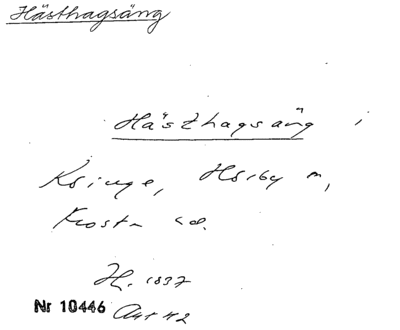 Hästhagsäng
Hästhagsäng i
Kringe, Hörby sn,
Frosta hd.
H. 1837
Nr 10446 Akt 42